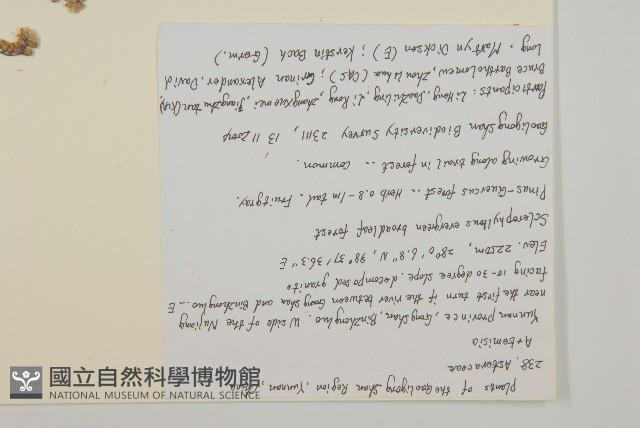 Plants of the Gaoligong Shan Region, Yunnan, China
238. Asteraceae
Artemisia
Yunnan Province, Gongshan, Binzhongluo. W side of the Nujiang
near the first turn if the river between Gongshan and Binzhongluo ... E
facing 10-30 degree slope. decomposed granite
Elev. 2250m, 28° 0' 6.8" N, 98° 37' 36.3" E
Sclerophyllous evergreen broadleaf forest
Pinus-Quercus forest ... Herb 0.8-1m tall. Fruit gray.
Growing along trail in forest ... Common.
Gaoligong Shan Biodiversity Survey 23111, 13 11 2004
Participants: Li Heng, Li Rong, Zhang xue mei,
Bruce Bartholomew, Zhou Li hua (CAS); Grinan Alexander, David
Long, Martyn Dickson (E); Kerstin Bach (Germ.)
國立自然科學博物館
NATIONAL MUSEUM OF NATURAL SCIENCE